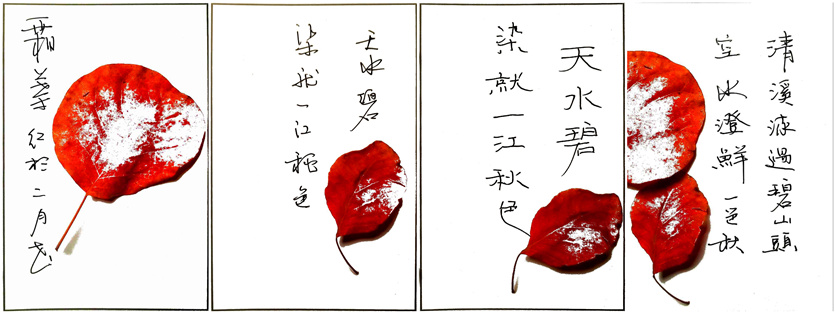 霜葉红於二月花
天水碧
染就一江秋色
天水碧
染就一江秋色
清溪流過碧山頭
空水澄鮮一色秋